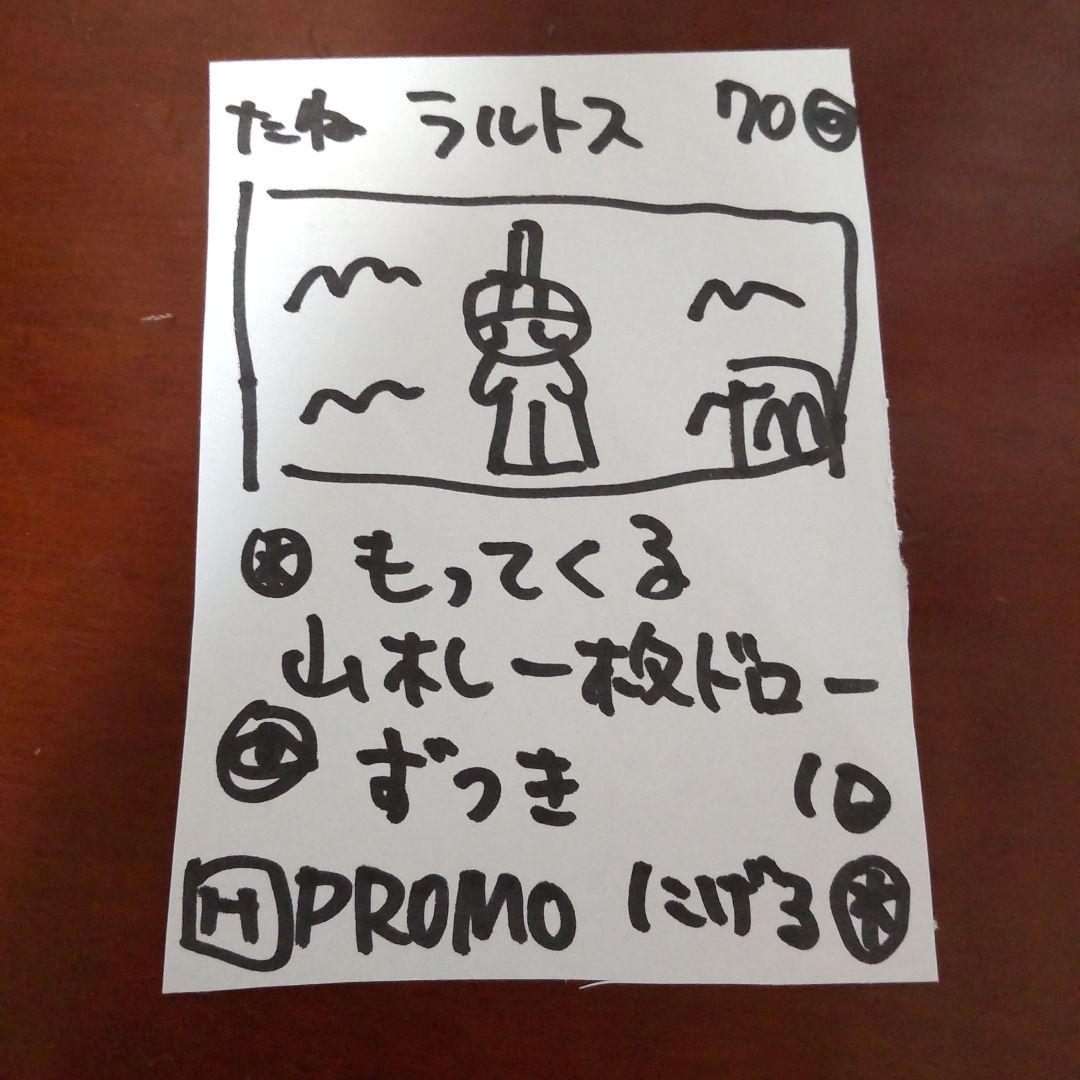 たね ラルトス 70
もってくる
山札一枚ドロー
ずつき 10
H PROMO にげる